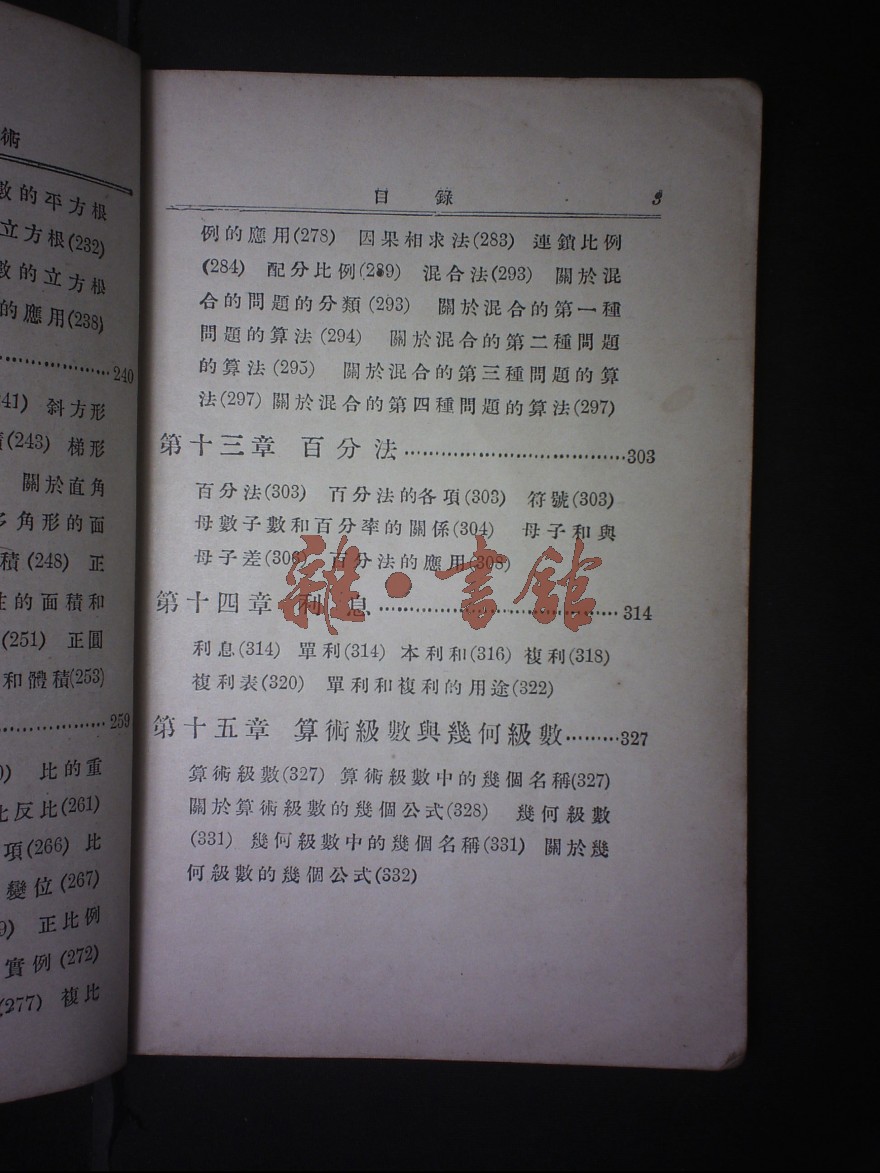 術
數的平方根
立方根(232)
數的立方根
的應用(238)
……………240
241) 斜方形
(243) 梯形
關於直角
多角形的面
積(248) 正
的面積和
(251) 正圓
和體積(253)
………………259
比的重
比反比(261)
項(266) 比
變位(267)
正比例
實例(272)
(277) 複比
目 錄 3
例的應用(278) 因果相求法(283) 連鎖比例
(284) 配分比例(289) 混合法(293) 關於混
合的問題的分類(293) 關於混合的第一種
問題的算法(294) 關於混合的第二種問題
的算法(295) 關於混合的第三種問題的算
法(297) 關於混合的第四種問題的算法(297)
第十三章 百分法………………………………303
百分法(303) 百分法的各項(303) 符號(303)
母數子數和百分率的關係(304) 母子和與
母子差(306) 百分法的應用(308)
第十四章 利息………………………………314
利息(314) 單利(314) 本利和(316) 複利(318)
複利表(320) 單利和複利的用途(322)
第十五章 算術級數與幾何級數………327
算術級數(327) 算術級數中的幾個名稱(327)
關於算術級數的幾個公式(328) 幾何級數
(331) 幾何級數中的幾個名稱(331) 關於幾
何級數的幾個公式(332)
雜·書館